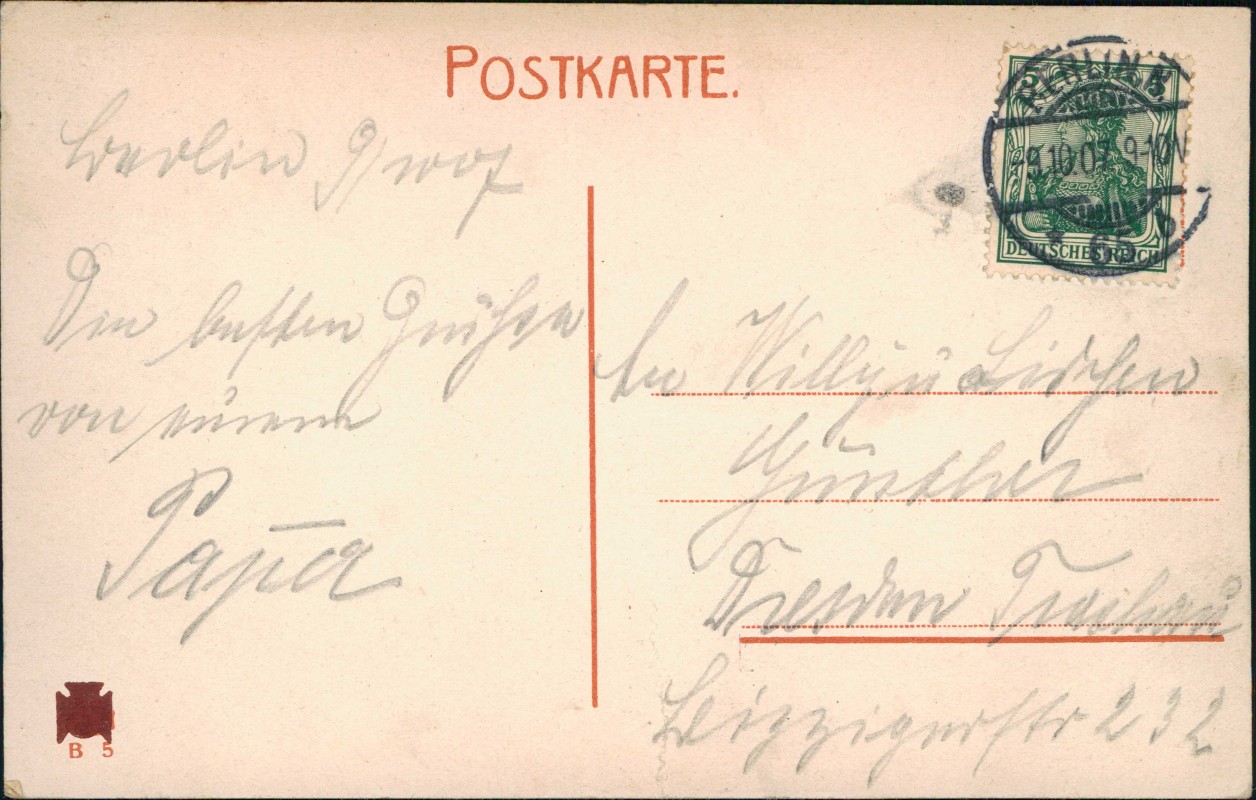 POSTKARTE.
Berlin 9/10 07
Die besten Grüße
von eurem
Papa
An Willy u Lieschen
Günther
Dresden Trachau
Leipzigerstr 232
BERLIN N
-9.10.07. 9-10N
* 65 b
5 5
DEUTSCHES REICH
B 5